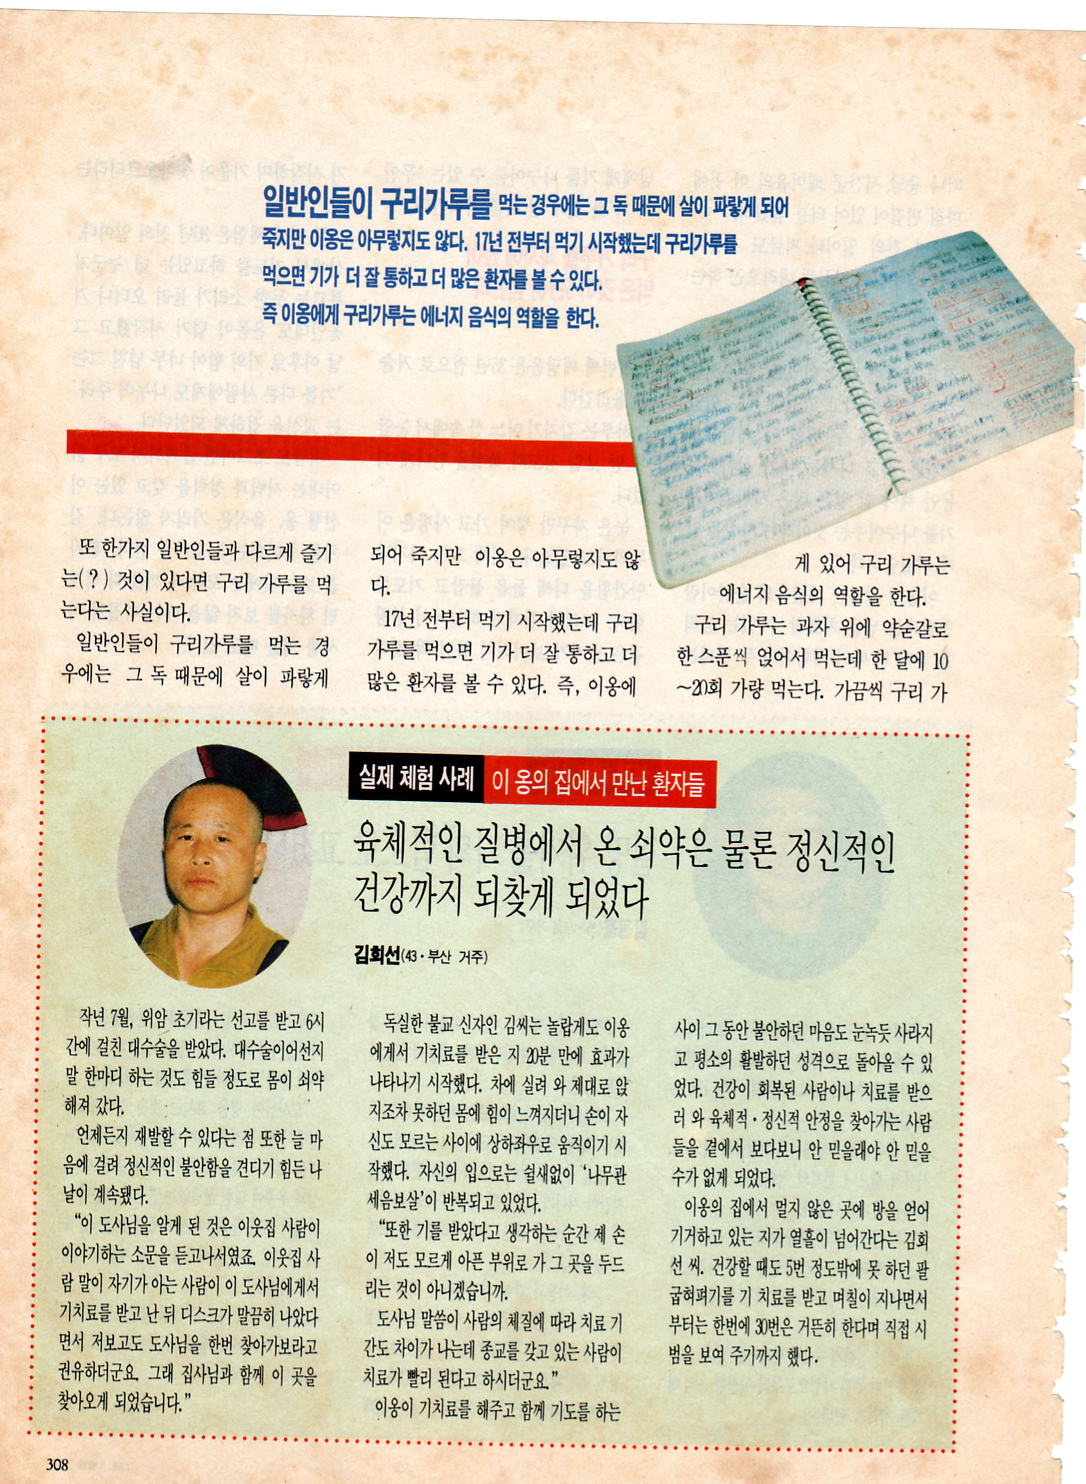 일반인들이 구리가루를 먹는 경우에는 그 독 때문에 살이 파랗게 되어
죽지만 이옹은 아무렇지도 않다. 17년 전부터 먹기 시작했는데 구리가루를
먹으면 기가 더 잘 통하고 더 많은 환자를 볼 수 있다.
즉 이옹에게 구리가루는 에너지 음식의 역할을 한다.
또 한가지 일반인들과 다르게 즐기
는(?) 것이 있다면 구리 가루를 먹
는다는 사실이다.
일반인들이 구리가루를 먹는 경
우에는 그 독 때문에 살이 파랗게
되어 죽지만 이옹은 아무렇지도 않
다.
17년 전부터 먹기 시작했는데 구리
가루를 먹으면 기가 더 잘 통하고 더
많은 환자를 볼 수 있다. 즉, 이옹에
게 있어 구리 가루는
에너지 음식의 역할을 한다.
구리 가루는 과자 위에 약숟갈로
한 스푼씩 얹어서 먹는데 한 달에 10
~20회 가량 먹는다. 가끔씩 구리 가
실제 체험 사례 이 옹의 집에서 만난 환자들
육체적인 질병에서 온 쇠약은 물론 정신적인
건강까지 되찾게 되었다
김희선(43·부산 거주)
작년 7월, 위암 초기라는 선고를 받고 6시
간에 걸친 대수술을 받았다. 대수술이어선지
말 한마디 하는 것도 힘들 정도로 몸이 쇠약
해져 갔다.
언제든지 재발할 수 있다는 점 또한 늘 마
음에 걸려 정신적인 불안함을 견디기 힘든 나
날이 계속됐다.
“이 도사님을 알게 된 것은 이웃집 사람이
이야기하는 소문을 듣고나서였죠. 이웃집 사
람 말이 자기가 아는 사람이 이 도사님에게서
기치료를 받고 난 뒤 디스크가 말끔히 나았다
면서 저보고도 도사님을 한번 찾아가보라고
권유하더군요. 그래 집사님과 함께 이 곳을
찾아오게 되었습니다.”
독실한 불교 신자인 김씨는 놀랍게도 이옹
에게서 기치료를 받은 지 20분 만에 효과가
나타나기 시작했다. 차에 실려 와 제대로 앉
지조차 못하던 몸에 힘이 느껴지더니 손이 자
신도 모르는 사이에 상하좌우로 움직이기 시
작했다. 자신의 입으로는 쉴새없이 ‘나무관
세음보살’이 반복되고 있었다.
“또한 기를 받았다고 생각하는 순간 제 손
이 저도 모르게 아픈 부위로 가 그 곳을 두드
리는 것이 아니겠습니까.
도사님 말씀이 사람의 체질에 따라 치료 기
간도 차이가 나는데 종교를 갖고 있는 사람이
치료가 빨리 된다고 하시더군요.”
이옹이 기치료를 해주고 함께 기도를 하는
사이 그 동안 불안하던 마음도 눈녹듯 사라지
고 평소의 활발하던 성격으로 돌아올 수 있
었다. 건강이 회복된 사람이나 치료를 받으
러 와 육체적·정신적 안정을 찾아가는 사람
들을 곁에서 보다보니 안 믿을래야 안 믿을
수가 없게 되었다.
이옹의 집에서 멀지 않은 곳에 방을 얻어
기거하고 있는 지가 열흘이 넘어간다는 김희
선 씨. 건강할 때도 5번 정도밖에 못 하던 팔
굽혀펴기를 기 치료를 받고 며칠이 지나면서
부터는 한번에 30번은 거뜬히 한다며 직접 시
범을 보여 주기까지 했다.
308